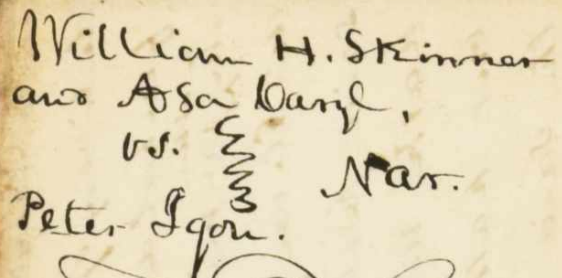 William H. Skinner
and Asa Daryl,
vs.
Nar.
Peter Igou.